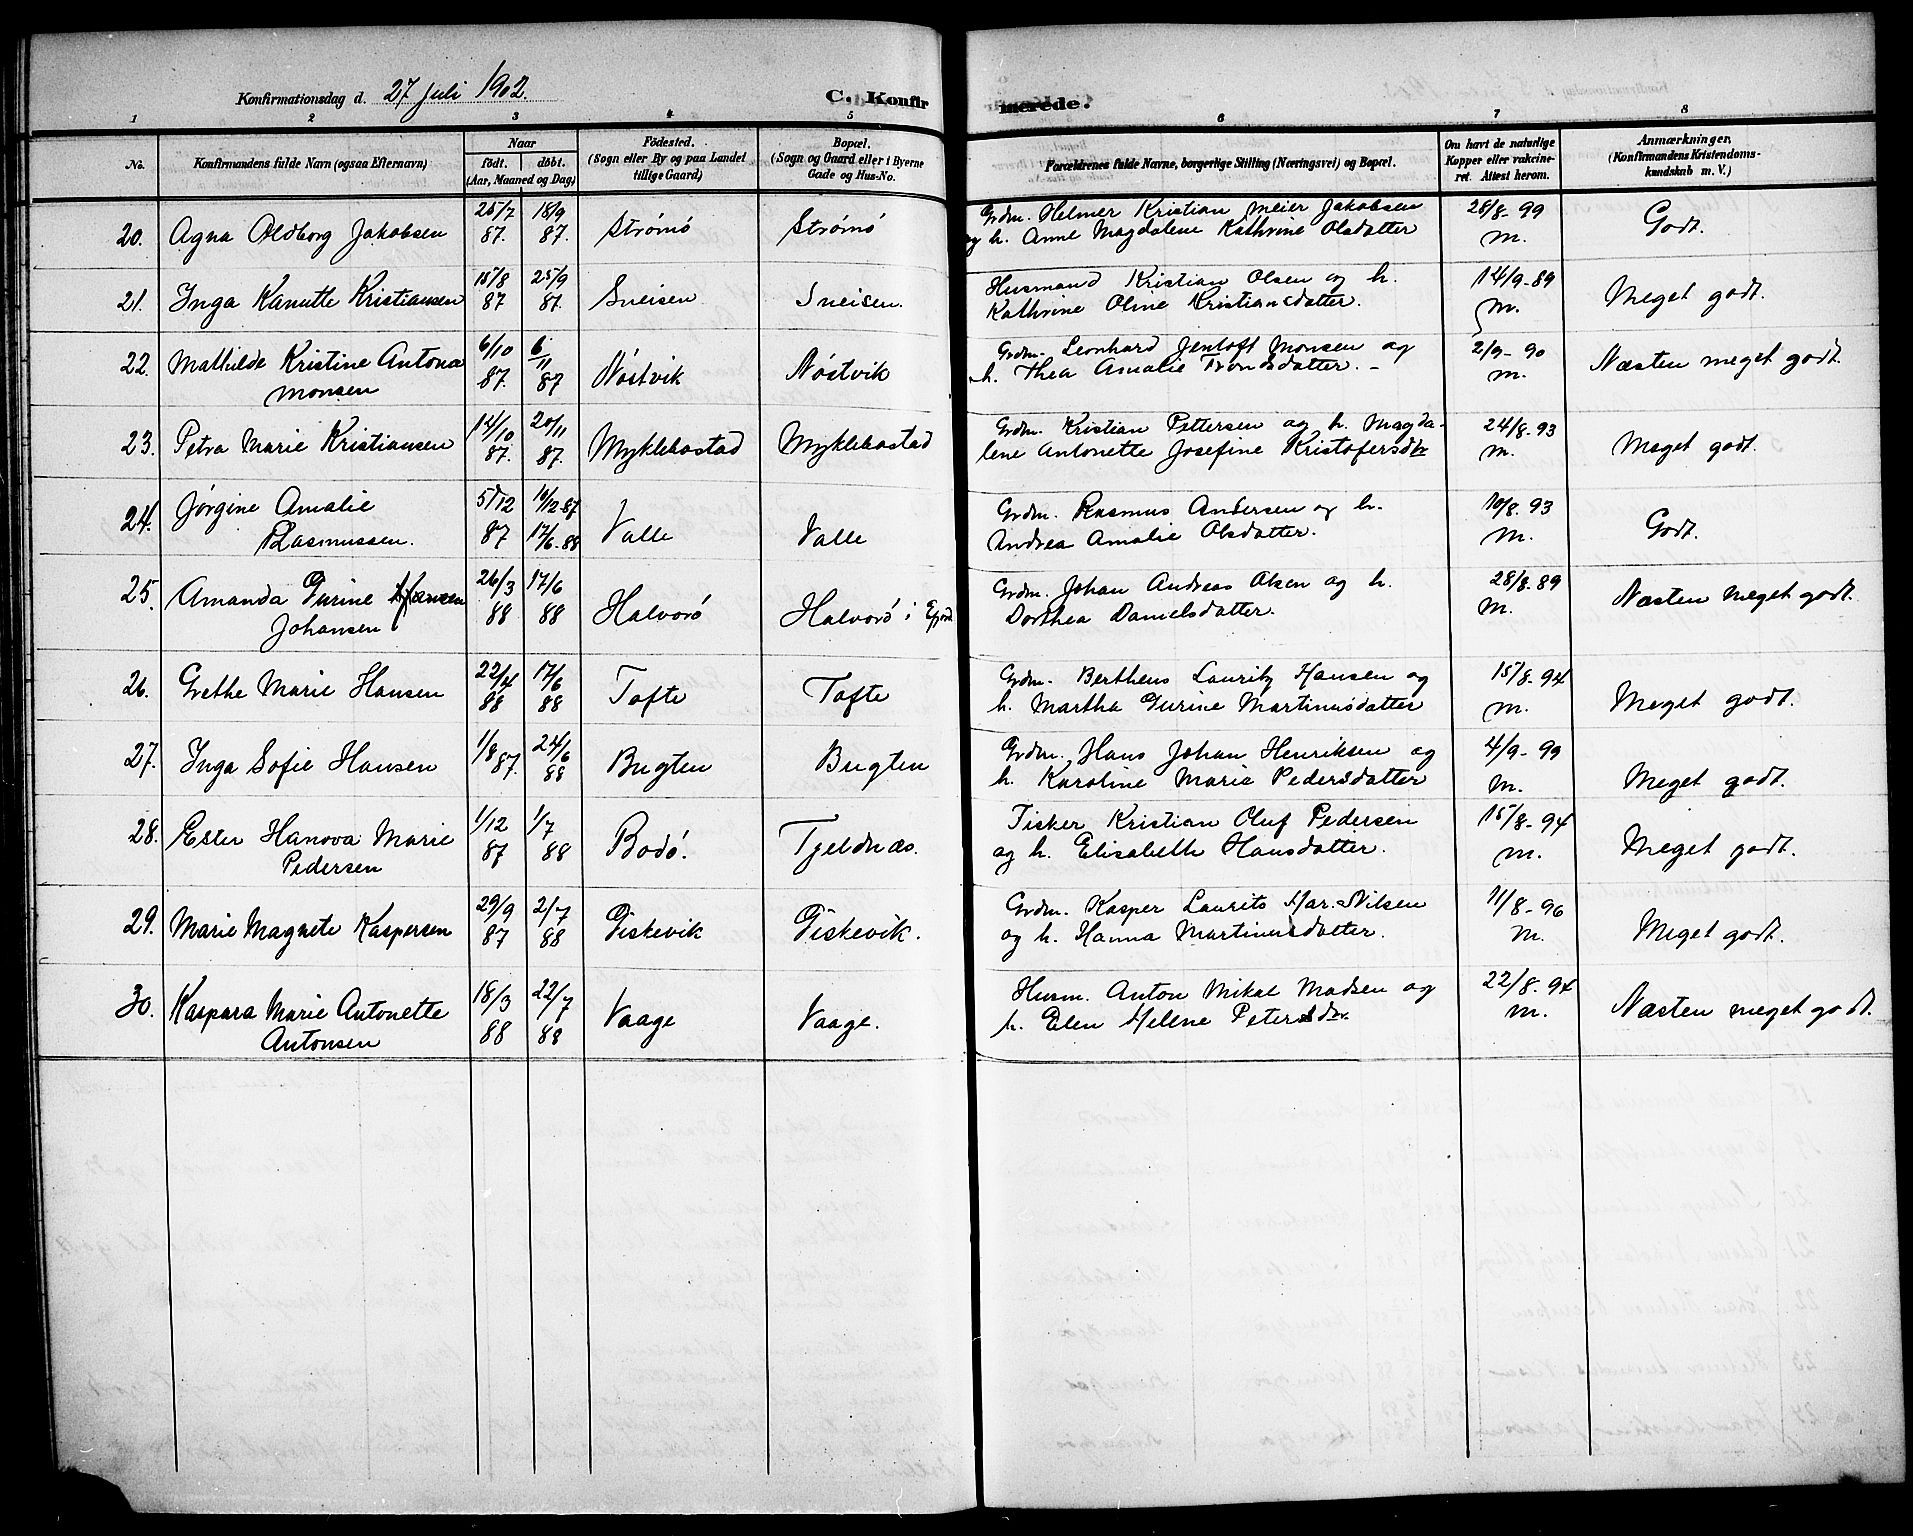 Konfirmationsdag d. 27 Juli 1902. C. Konfirmerede.
1 2 3 4 5 6 7 8
No. Konfirmandens fulde Navn (ogsaa Efternavn) Naar födt. döbt. (Aar, Maaned og Dag) Födested. (Sogn eller By og paa Landet tillige Gaard) Bopæl. (Sogn og Gaard eller i Byerne Gade og Hus-No. Forældrenes fulde Navne, borgerlige Stilling (Næringsvei) og Bopæl. Om havt de naturlige Kopper eller vakcineret. Attest herom. Anmærkninger, (Konfirmandens Kristendomskundskab m. V.)
20. Agna Aldborg Jakobsen 25/7 87. 18/9 87. Strømö Strømö Grdm. Helmer Kristian Meier Jakobsen og h. Anne Magdalene Kathrine Olsdatter 28/8-99 M. Godt.
21. Inga Kanutte Kristiansen 15/8 87 25/9 87. Sneisen Sneisen. Husmand Kristian Olsen og h. Kathrine Oline Kristiansdatter. 14/9-89 M. Meget godt.
22. Mathilde Kristine Antona Monsen 6/10 87. 6/11 87 Nöstvik Nöstvik Grdm. Leonhard Jentoft Monsen og h. Thea Amalie Trondsdatter. - 2/9-90 M. Næsten meget godt.
23. Petra Marie Kristiansen 14/10 87. 20/11 87. Myklebostad Myklebostad Grdm. Kristian Pettersen og h. Magdalene Antonette Josefine Kristofersdtr 24/8-93 M. Meget godt.
24. Jørgine Amalie Rasmussen. 5/12 87 16/12-87 17/6-88 Valle Valle Grdm. Rasmus Andersen og h. Andrea Amalie Olsdatter. 10/8-93 M. Godt.
25. Amanda Gurine Hansen Johansen 26/3 88 17/6 88 Halvorö Halvorö i Efjord Grdm. Johan Andreas Olsen og h. Dorthea Danielsdatter. 28/8-89 M. Næsten meget godt.
26. Grethe Marie Hansen 22/4 88 17/6 88 Tofte Tofte Grdm. Bertheus Lauritz Hansen og h. Martha Gurine Martinusdatter 15/8-94 M. Meget godt.
27. Inga Sofie Hansen 1/8 87. 24/6 88 Bugten Bugten Grdm. Hans Johan Henriksen og h. Karoline Marie Pedersdatter 4/9-99 M. Meget godt.
28. Ester Hanova Marie Pedersen 1/12 87 1/7 88 Bodö. Tjeldnæs. Fisker Kristian Oluf Pedersen og h. Elisabeth Hansdatter. 15/8-94 M. Meget godt.
29. Marie Magnete Kaspersen 29/9 87 2/7 88 Fiskevik Fiskevik. Grdm. Kasper Laurits Mar. Nilsen og h. Hanna Martinusdatter. 11/8-96 M. Meget godt.
30. Kaspara Marie Antonette Antonsen 18/3 88 22/7 88 Vaage Vaage. Husm. Anton Mikal Madsen og h. Elen Helene Petersdtr. 22/8-94 M. Næsten meget godt.